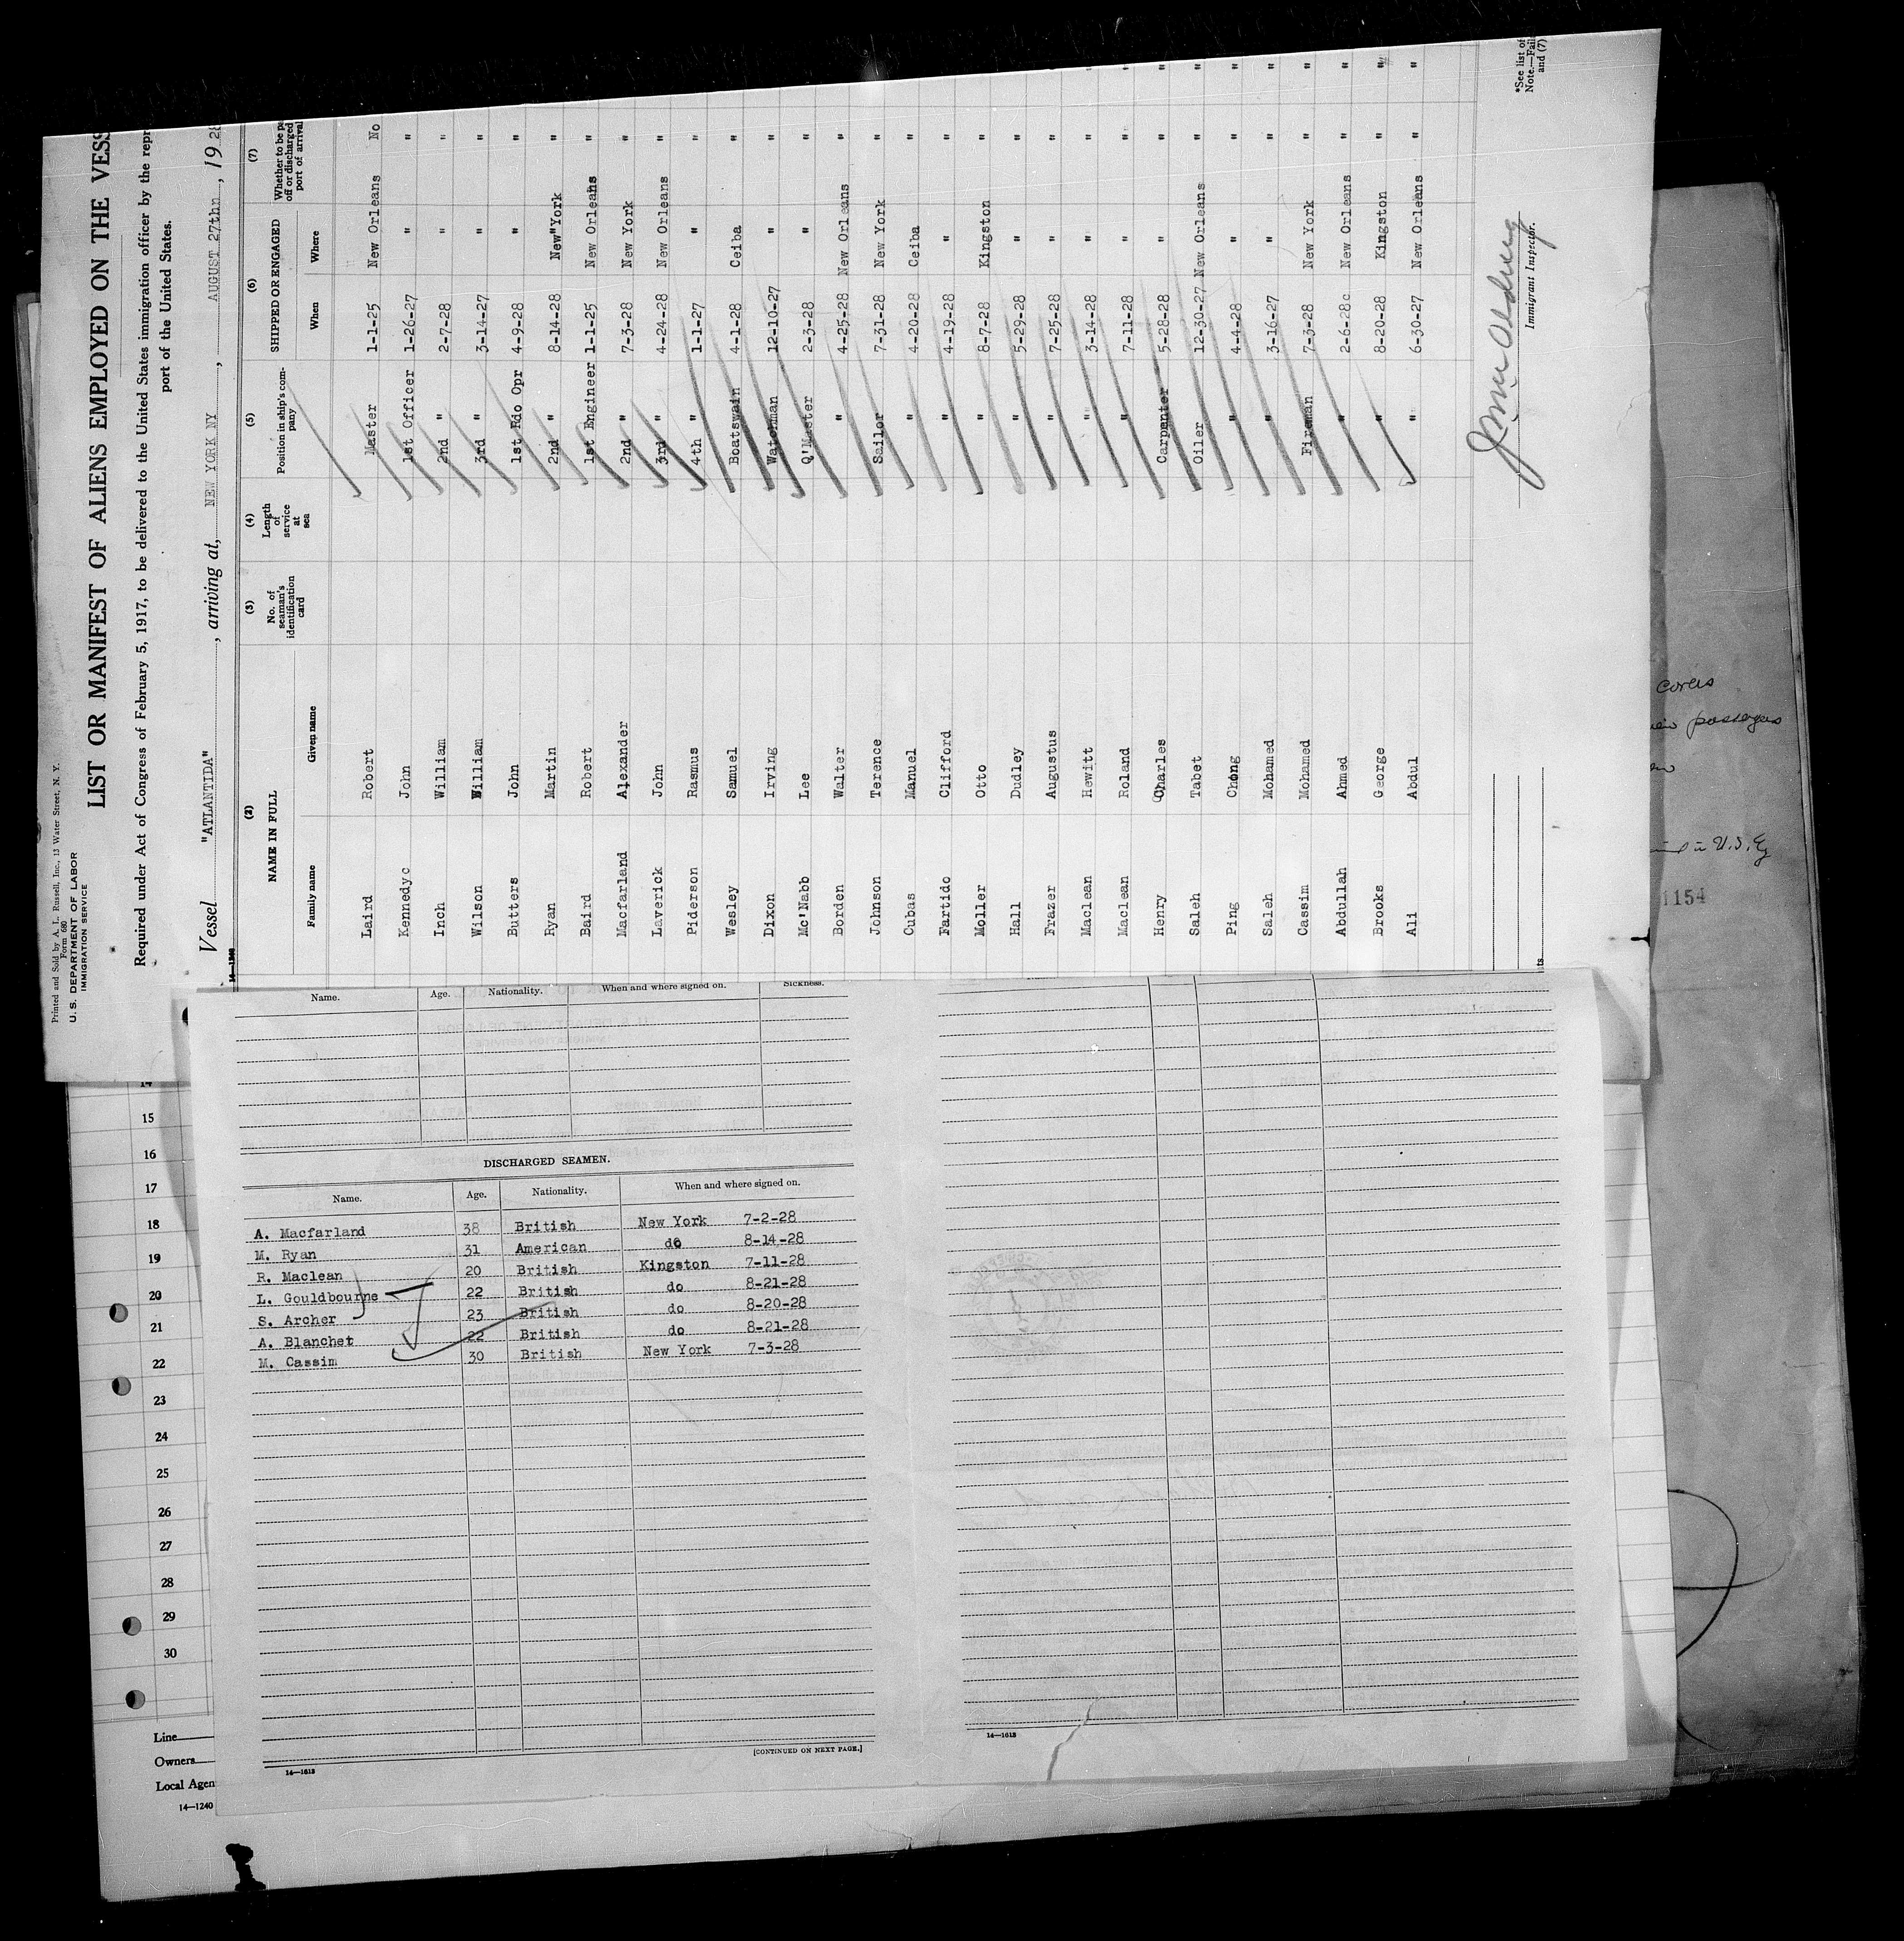 Printed and Sold by A. L. Russell, Inc., 13 Water Street, N. Y.
Form 680
U. S. DEPARTMENT OF LABOR
IMMIGRATION SERVICE
LIST OR MANIFEST OF ALIENS EMPLOYED ON THE VESS
Required under Act of Congress of February 5, 1917, to be delivered to the United States immigration officer by the repr
port of the United States.
Vessel "ATLANTIDA", arriving at, NEW YORK NY, AUGUST 27thn, 1928
(2) (3) (4) (5) (6) (7)
NAME IN FULL No. of seaman's identification card Length of service at sea Position in ship's company SHIPPED OR ENGAGED Whether to be pa off or discharged port of arrival
Family name Given name When Where
Laird Robert Master 1-1-25 New Orleans No
Kennedyc John 1st Officer 1-26-27 " "
Inch William 2nd " 2-7-28 " "
Wilson William 3rd " 3-14-27 " "
Butters John 1st Rdo Opr 4-9-28 " "
Ryan Martin 2nd " 8-14-28 New"York "
Baird Robert 1st Engineer 1-1-25 New Orleans "
Macfarland Alexander 2nd " 7-3-28 New York "
Laverick John 3rd " 4-24-28 New Orleans "
Piderson Rasmus 4th " 1-1-27 " "
Wesley Samuel Boatswain 4-1-28 Ceiba "
Dixon Irving Watchman 12-10-27 " "
Mc'Nabb Lee Q'Master 2-3-28 " "
Borden Walter " 4-25-28 New Orleans "
Johnson Terence Sailor 7-31-28 New York "
Cubas Manuel " 4-20-28 Ceiba "
Partido Clifford " 4-19-28 " "
Moller Otto " 8-7-28 Kingston "
Hall Dudley " 5-29-28 " "
Frazer Augustus " 7-25-28 " "
Maclean Hewitt " 3-14-28 " "
Maclean Roland " 7-11-28 " "
Henry Charles Carpenter 5-28-28 " "
Saleh Tabet Oiler 12-30-27 New Orleans "
Ping Chong " 4-4-28 " "
Saleh Mohamed " 3-16-27 " "
Cassim Mohamed Fireman 7-3-28 New York "
Abdullah Ahmed " 2-6-28c New Orleans "
Brooks George " 8-20-28 Kingston "
Ali Abdul " 6-30-27 New Orleans "
Immigrant Inspector.
*See list of
Note.—Fail
and (7)
covers
passengers
in U.S.
1154
Name. Age. Nationality. When and where signed on. Sickness.
DISCHARGED SEAMEN.
Name. Age. Nationality. When and where signed on.
A. Macfarland 38 British New York 7-2-28
M. Ryan 31 American do 8-14-28
R. Maclean 20 British Kingston 7-11-28
L. Gouldbourne 22 British do 8-21-28
S. Archer 23 British do 8-20-28
A. Blanchet 22 British do 8-21-28
M. Cassim 30 British New York 7-3-28
[CONTINUED ON NEXT PAGE.]
14—1613
14—1613
14
15
16
17
18
19
20
21
22
23
24
25
26
27
28
29
30
Line
Owners
Local Agen
14—1240